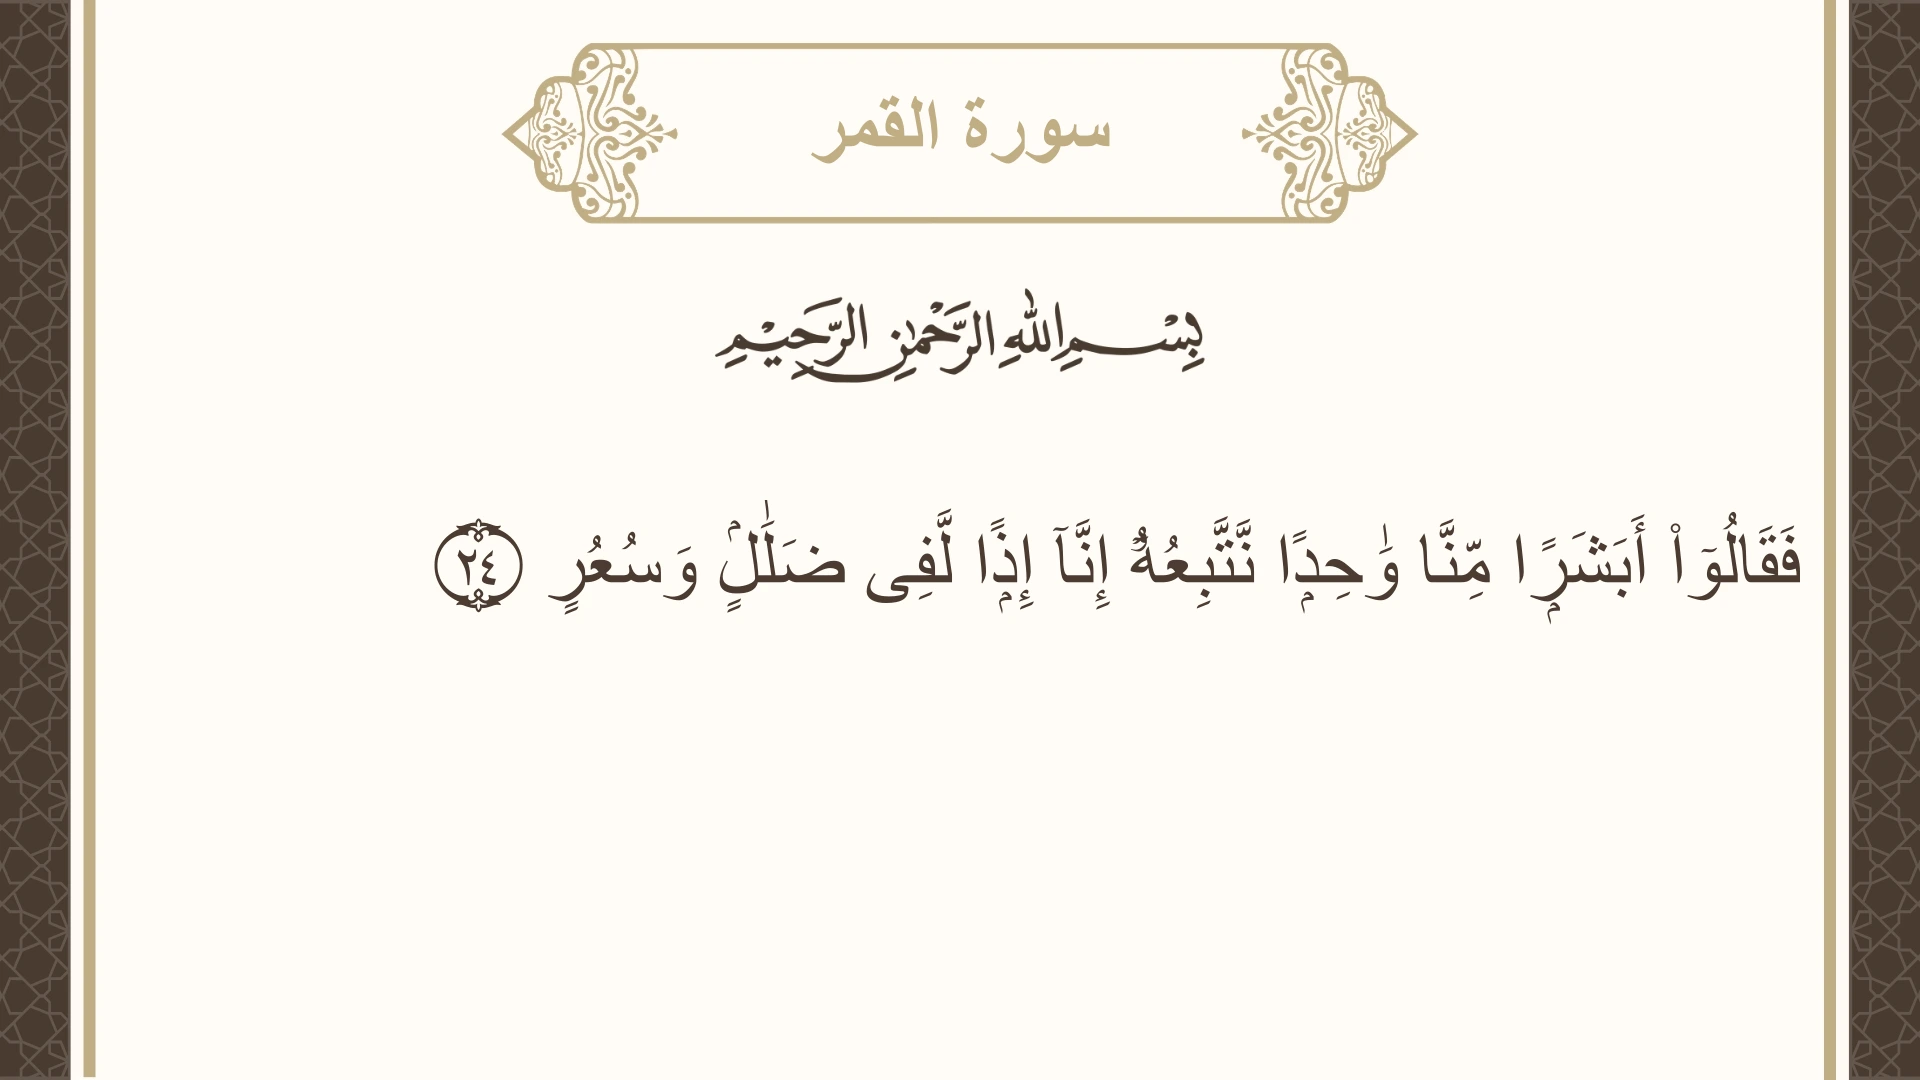 سورة القمر
بِسْمِ اللَّهِ الرَّحْمَٰنِ الرَّحِيمِ
فَقَالُوٓا۟ أَبَشَرًۭا مِّنَّا وَٰحِدًۭا نَّتَّبِعُهُۥٓ إِنَّآ إِذًۭا لَّفِى ضَلَٰلٍۢ وَسُعُرٍ ٢٤